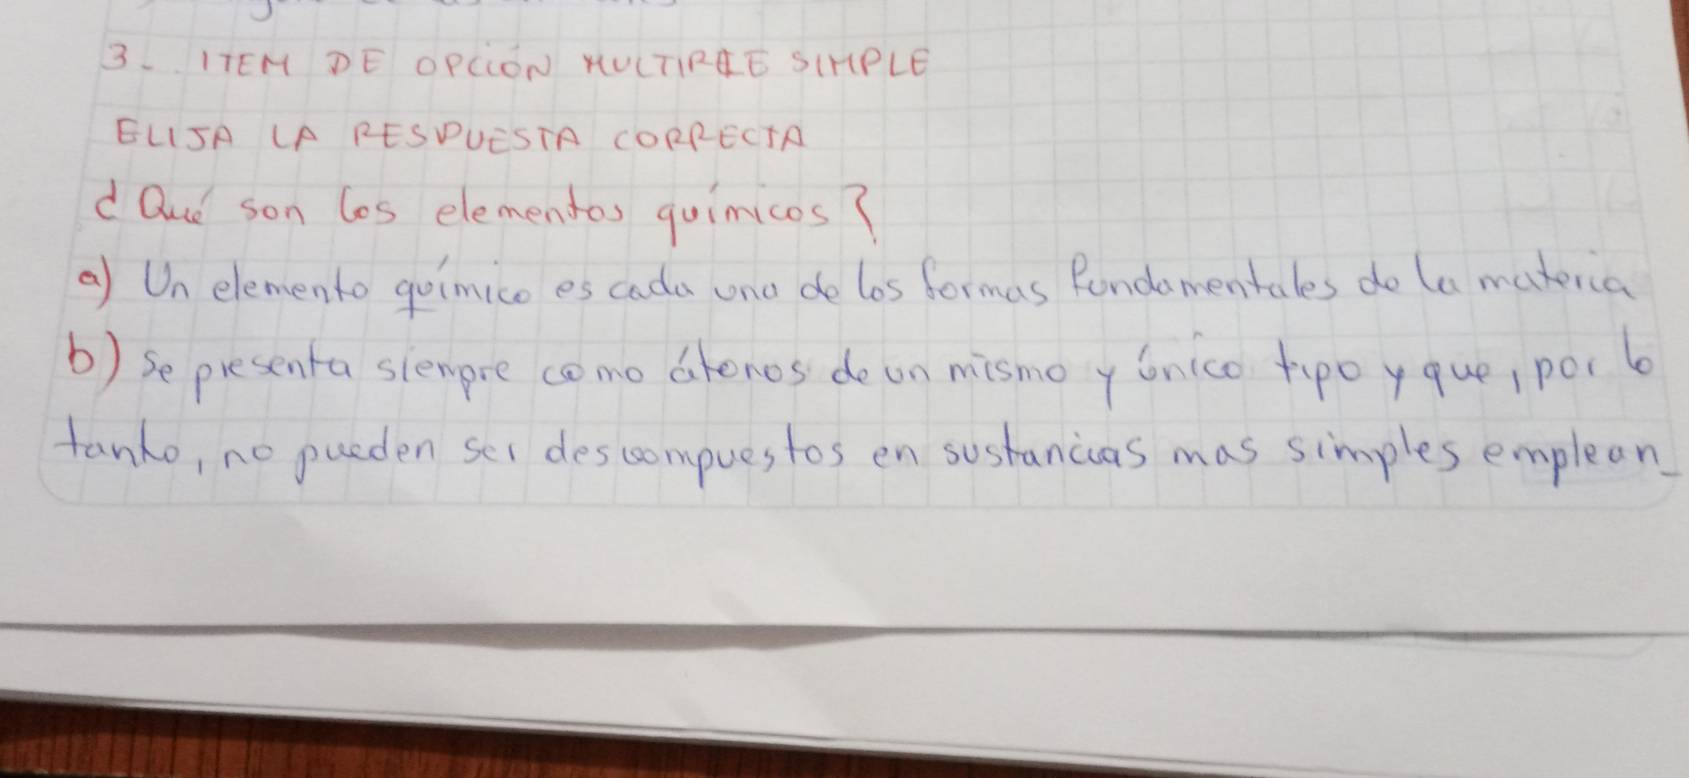 3. ITEM DE OPCIÓN MULTIPLE SIMPLE
ELIJA LA RESPUESTA CORRECTA
¿Qué son los elementos químicos?
a) Un elemento químico es cada una de los formas fundamentales de la materia
b) Se presenta siempre como átonos de un mismo y único tipo y que, por lo
tanto, no pueden ser descompuestos en sustancias mas simples emplean_